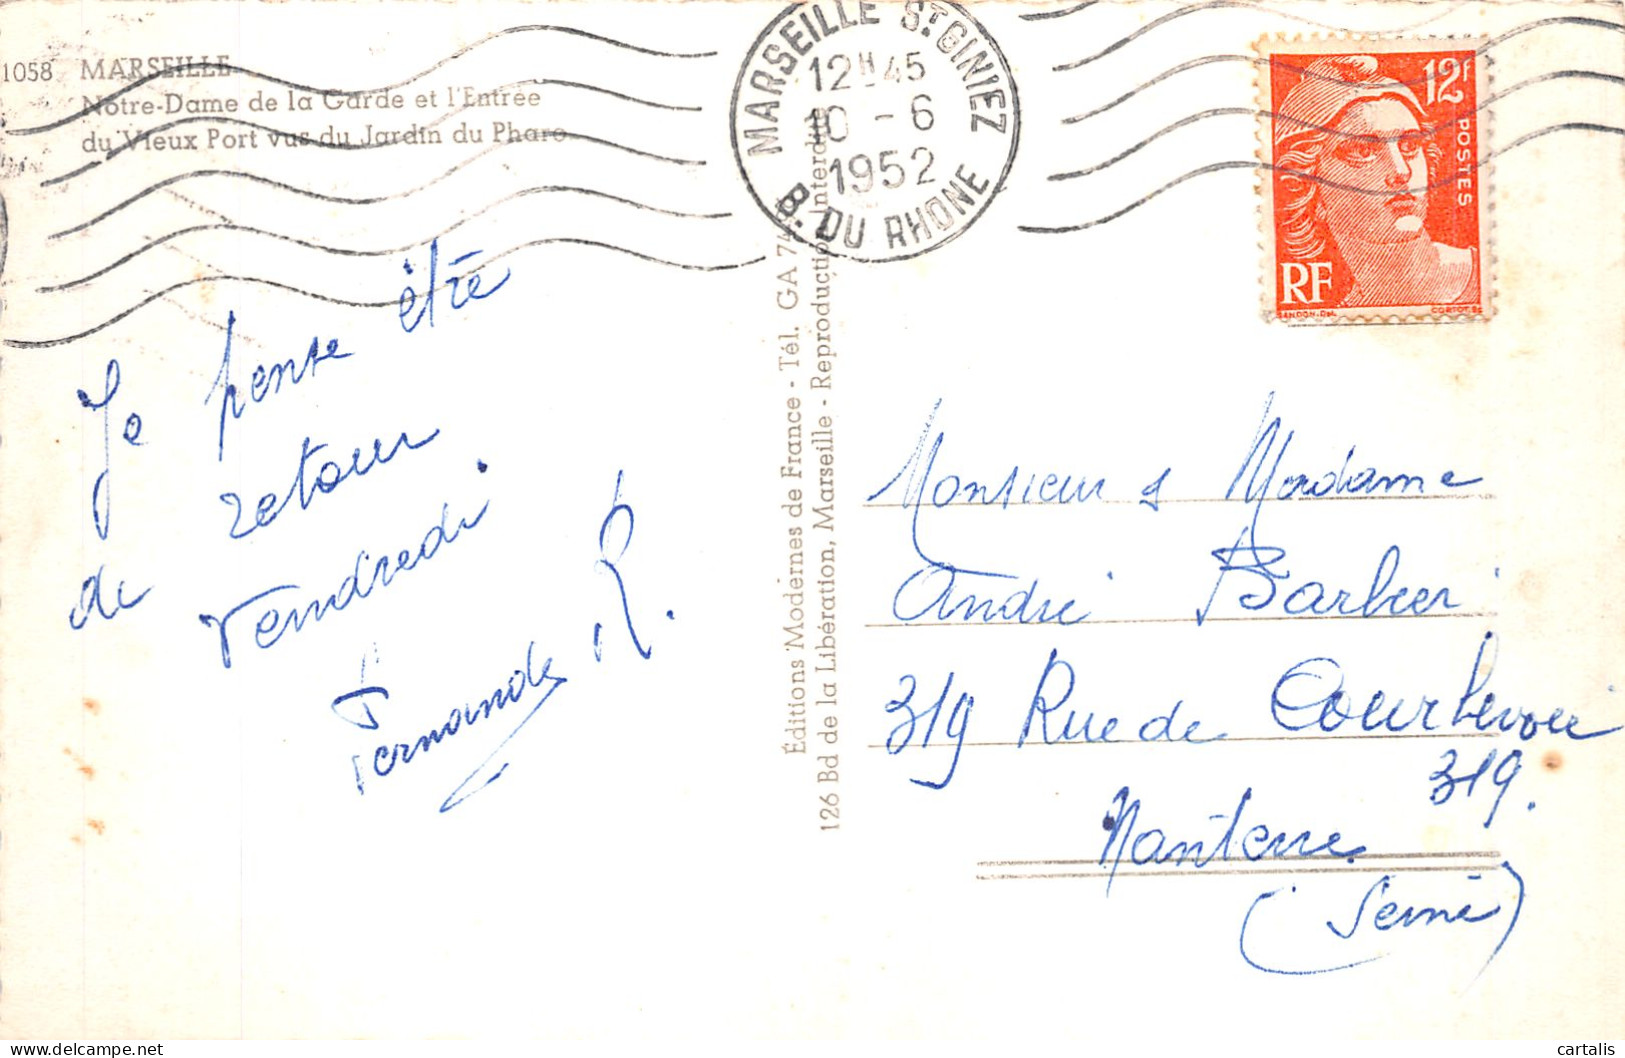 1058 MARSEILLE
Notre-Dame de la Garde et l'Entrée
du Vieux Port vus du Jardin du Pharo
MARSEILLE ST GINIEZ
12H45
10 - 6
1952
B. DU RHONE
12F
POSTES
RF
GANDON.DEL.
CORTOT.SC
Je pense être
de retour
Vendredi.
Fernande R.
Éditions Modernes de France - Tél. GA 74
126 Bd de la Libération, Marseille - Reproduction Interdite
Monsieur & Madame
André Barbier
319 Rue de Courbevoie
319.
Nanterre
(Seine)
cartalis